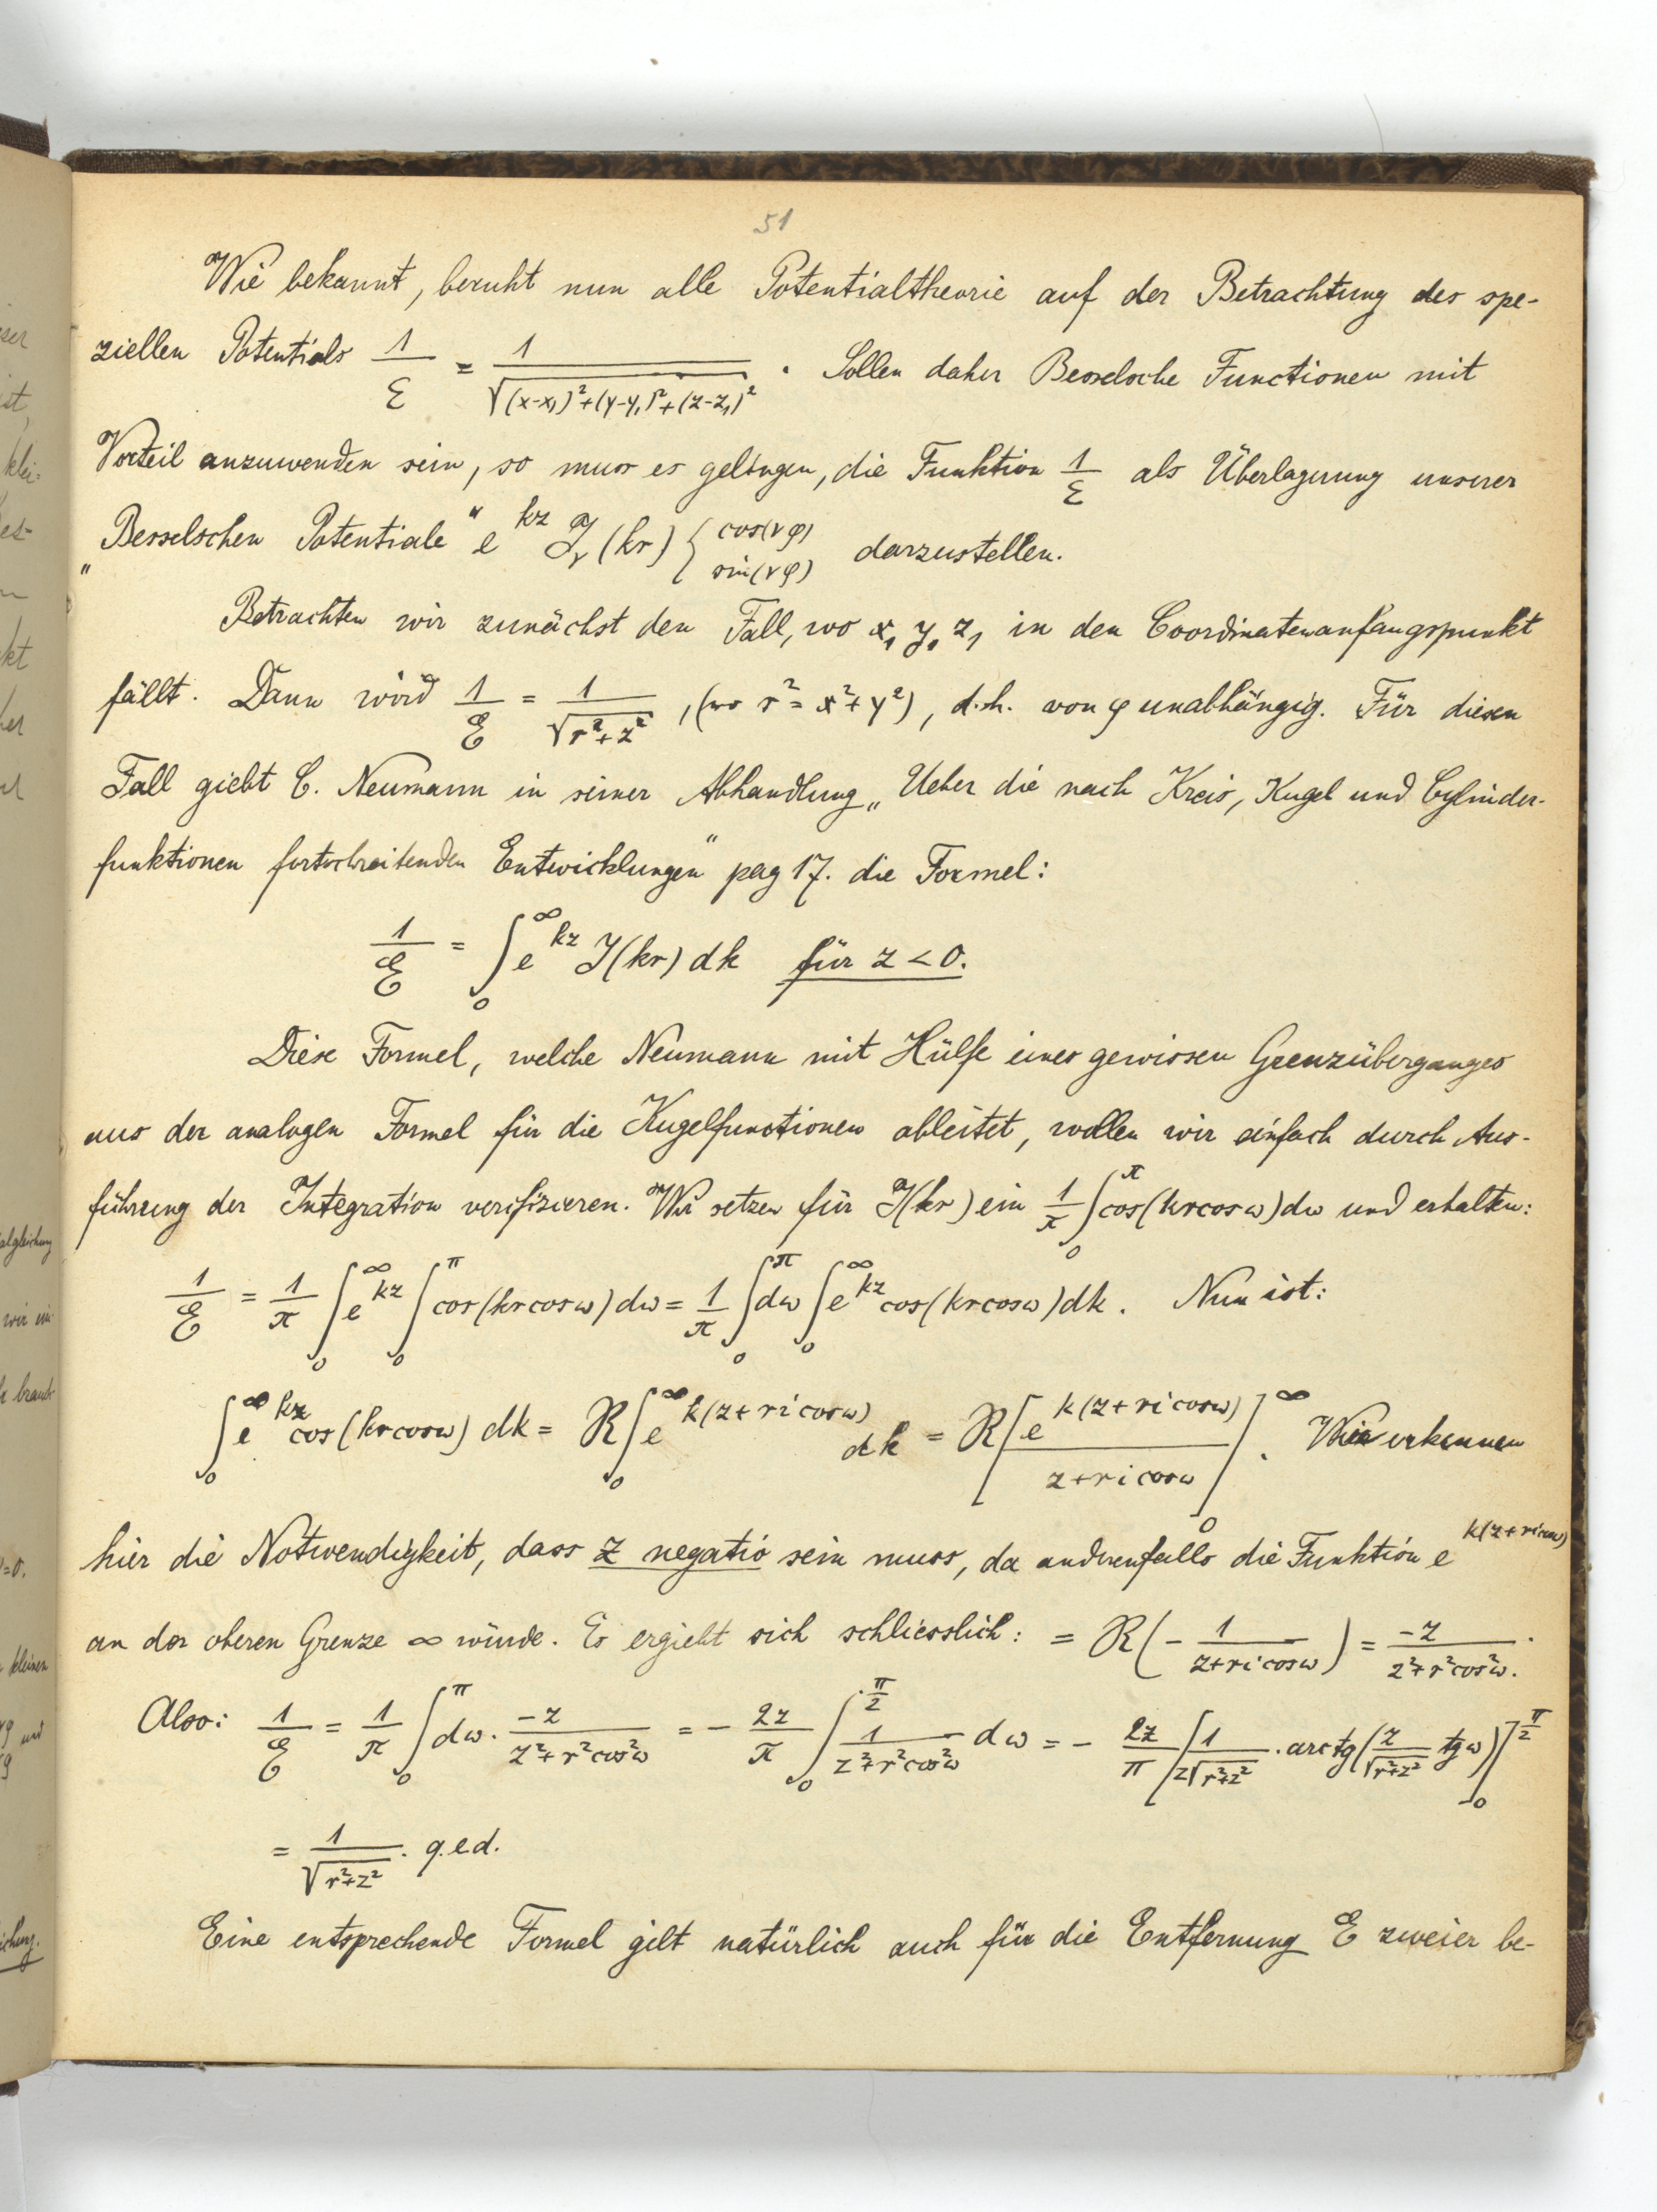 51
Wie bekannt, beruht nun alle Potentialtheorie auf der Betrachtung des spe-
ziellen Potentials 1/E = 1/√((x-x₁)²+(y-y₁)²+(z-z₁)²) . Sollen daher Besselsche Functionen mit
Vorteil anzuwenden sein, so muss es gelingen, die Funktion 1/E als Überlagerung unserer
„Besselschen Potentiale“ e^{kz} J_ν(kr) { cos(νφ) sin(νφ) darzustellen.
Betrachten wir zunächst den Fall, wo x₁ y₁ z₁ in den Coordinatenanfangspunkt
fällt. Dann wird 1/E = 1/√(r²+z²) , (wo r² = x²+y²), d.h. von φ unabhängig. Für diesen
Fall giebt C. Neumann in seiner Abhandlung „Ueber die nach Kreis, Kugel und Cylinder-
funktionen fortschreitenden Entwicklungen“ pag 17. die Formel:
1/E = ∫₀^∞ e^{kz} J(kr) dk für z < 0.
Diese Formel, welche Neumann mit Hülfe eines gewissen Grenzüberganges
aus der analogen Formel für die Kugelfunctionen ableitet, wollen wir einfach durch Aus-
führung der Integration verifizieren. Wir setzen für J(kr) ein 1/π ∫₀^π cos(kr cos ω) dω und erhalten:
1/E = 1/π ∫₀^∞ e^{kz} ∫₀^π cos(kr cos ω) dω = 1/π ∫₀^π dω ∫₀^∞ e^{kz} cos(kr cos ω) dk . Nun ist:
∫₀^∞ e^{kz} cos(kr cos ω) dk = R ∫₀^∞ e^{k(z+ri cos ω)} dk = R [ e^{k(z+ri cos ω)} / (z+ri cos ω) ]₀^∞ . Wir erkennen
hier die Notwendigkeit, dass z negativ sein muss, da anderenfalls die Funktion e^{k(z+ri cos ω)}
an der oberen Grenze ∞ würde. Es ergiebt sich schliesslich: = R (- 1/(z+ri cos ω)) = -z/(z²+r² cos²ω) .
Also: 1/E = 1/π ∫₀^π dω · -z/(z²+r² cos²ω) = - 2z/π ∫₀^{π/2} 1/(z²+r² cos²ω) dω = - 2z/π [ 1/(z√(r²+z²)) · arctg( z/√(r²+z²) tg ω) ]₀^{π/2}
= 1/√(r²+z²) . q.e.d.
Eine entsprechende Formel gilt natürlich auch für die Entfernung E zweier be-